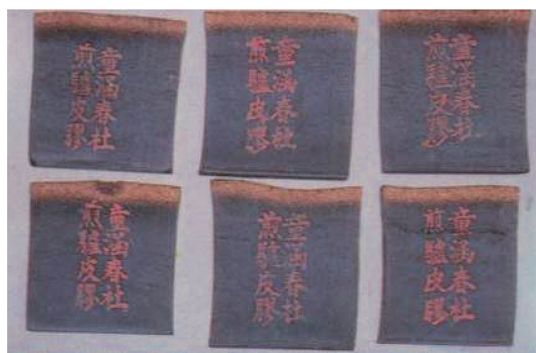 童涵春社
煎驢皮膠
童涵春社
煎驢皮膠
童涵春社
煎驢皮膠
童涵春社
煎驢皮膠
童涵春社
煎驢皮膠
童涵春社
煎驢皮膠